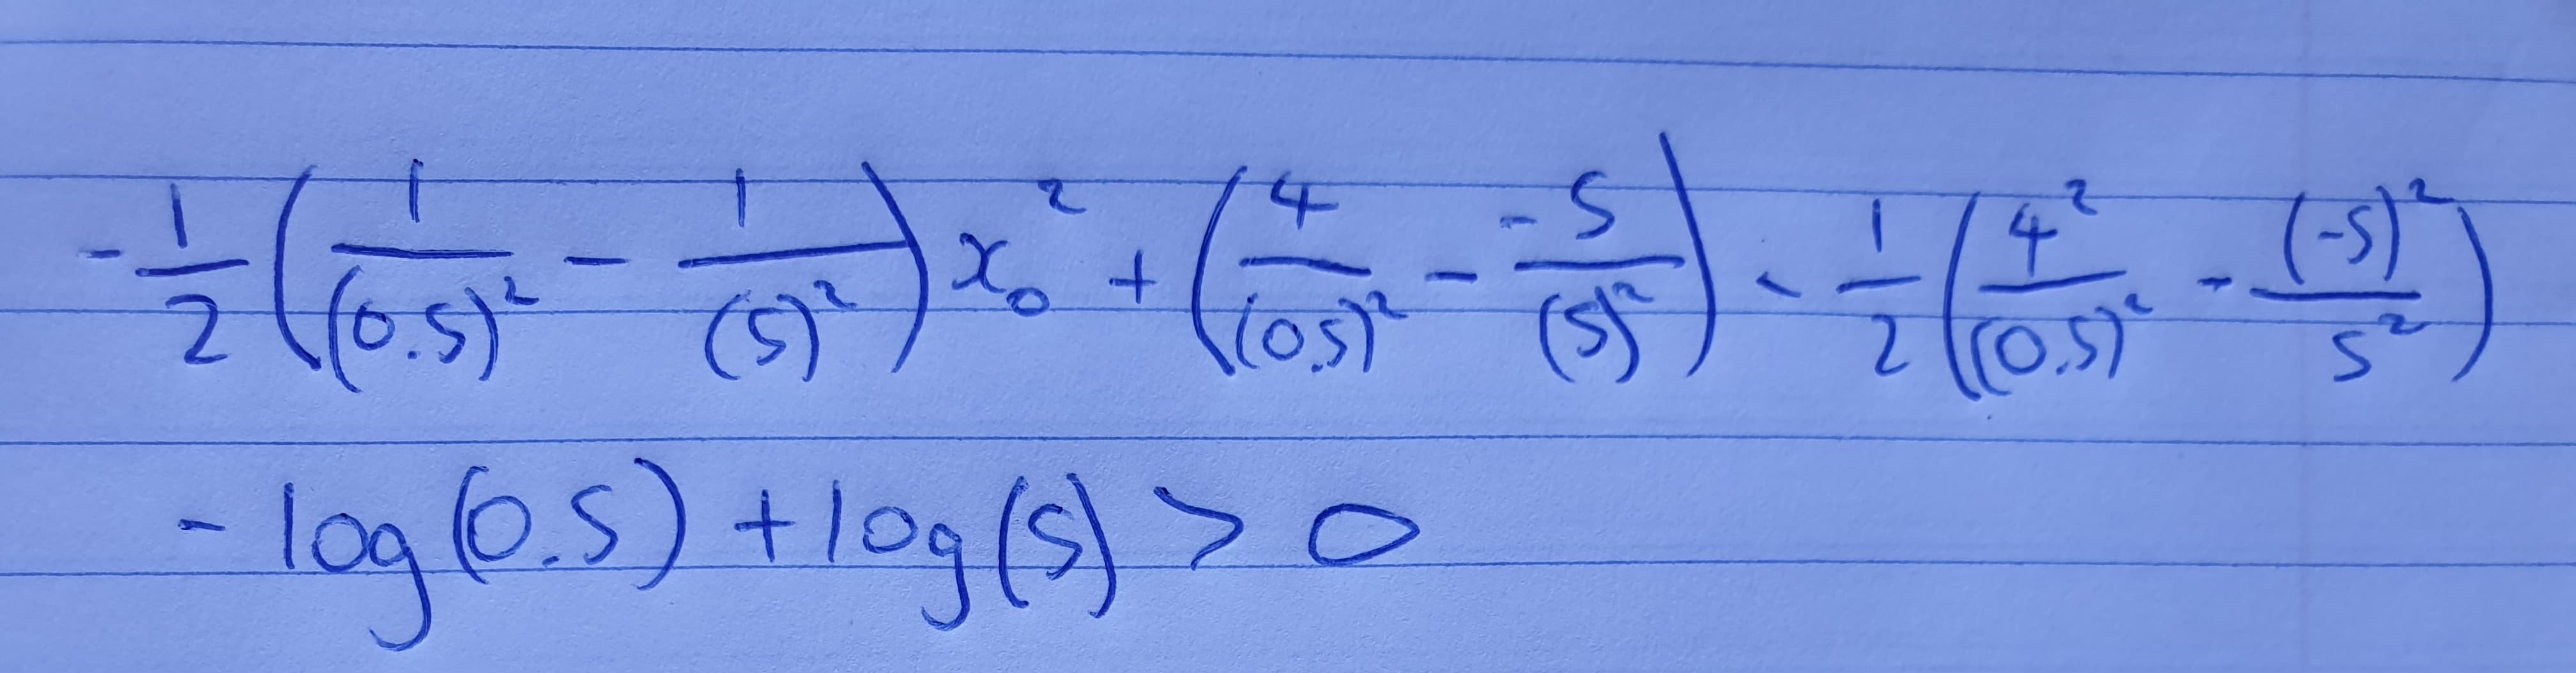 -\frac{1}{2}\left(\frac{1}{(0.5)^2} - \frac{1}{(5)^2}\right)x_0^2 + \left(\frac{4}{(0.5)^2} - \frac{-5}{(5)^2}\right) - \frac{1}{2}\left(\frac{4^2}{(0.5)^2} - \frac{(-5)^2}{5^2}\right)
-\log(0.5) + \log(5) > 0